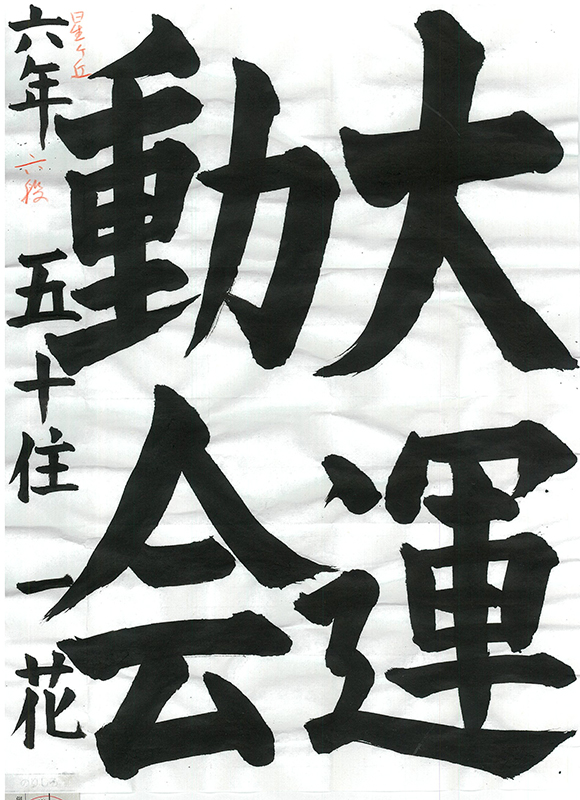 大運
動会
六年 五十住 一花
星ヶ丘
六段